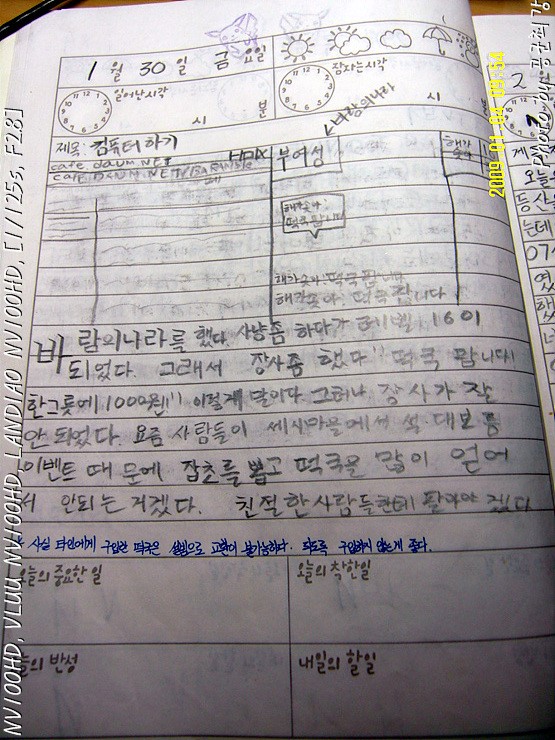 1월 30일 금요일
일어난시각
시 분
잠자는시각
시 분
제목: 컴퓨터하기
바람의나라
cafe daum NET
CAFE DAUM NET/BARAM
부여성
해가솟아:
떡국 팝니다
해가솟아: 떡국 팝니다
해가솟아: 떡국 팝니다
바람의나라를 했다. 사냥좀 하다가 레벨 16이
되었다. 그래서 장사좀 했다 "떡국 팝니다!
한그릇에 1000원!" 이렇게 말이다. 그러나 장사가 잘
안 되었다. 요즘 사람들이 세시마을에서 설·대보름
이벤트 때문에 잡초를 뽑고 떡국을 많이 얻어
서 안되는 거겠다. 친절한사람들한테 팔아야 겠다
* 사실 타인에게 구입한 떡국은 설빔으로 교환이 불가능하다. 되도록 구입하지 않는게 좋다.
오늘의 중요한 일
오늘의 착한일
오늘의 반성
내일의 할일
2
등산을
는데
NV100HD, VLUU NV100HD, LANDIAO NV100HD, [1/125s, F2.8]
2009/01/04 09:54